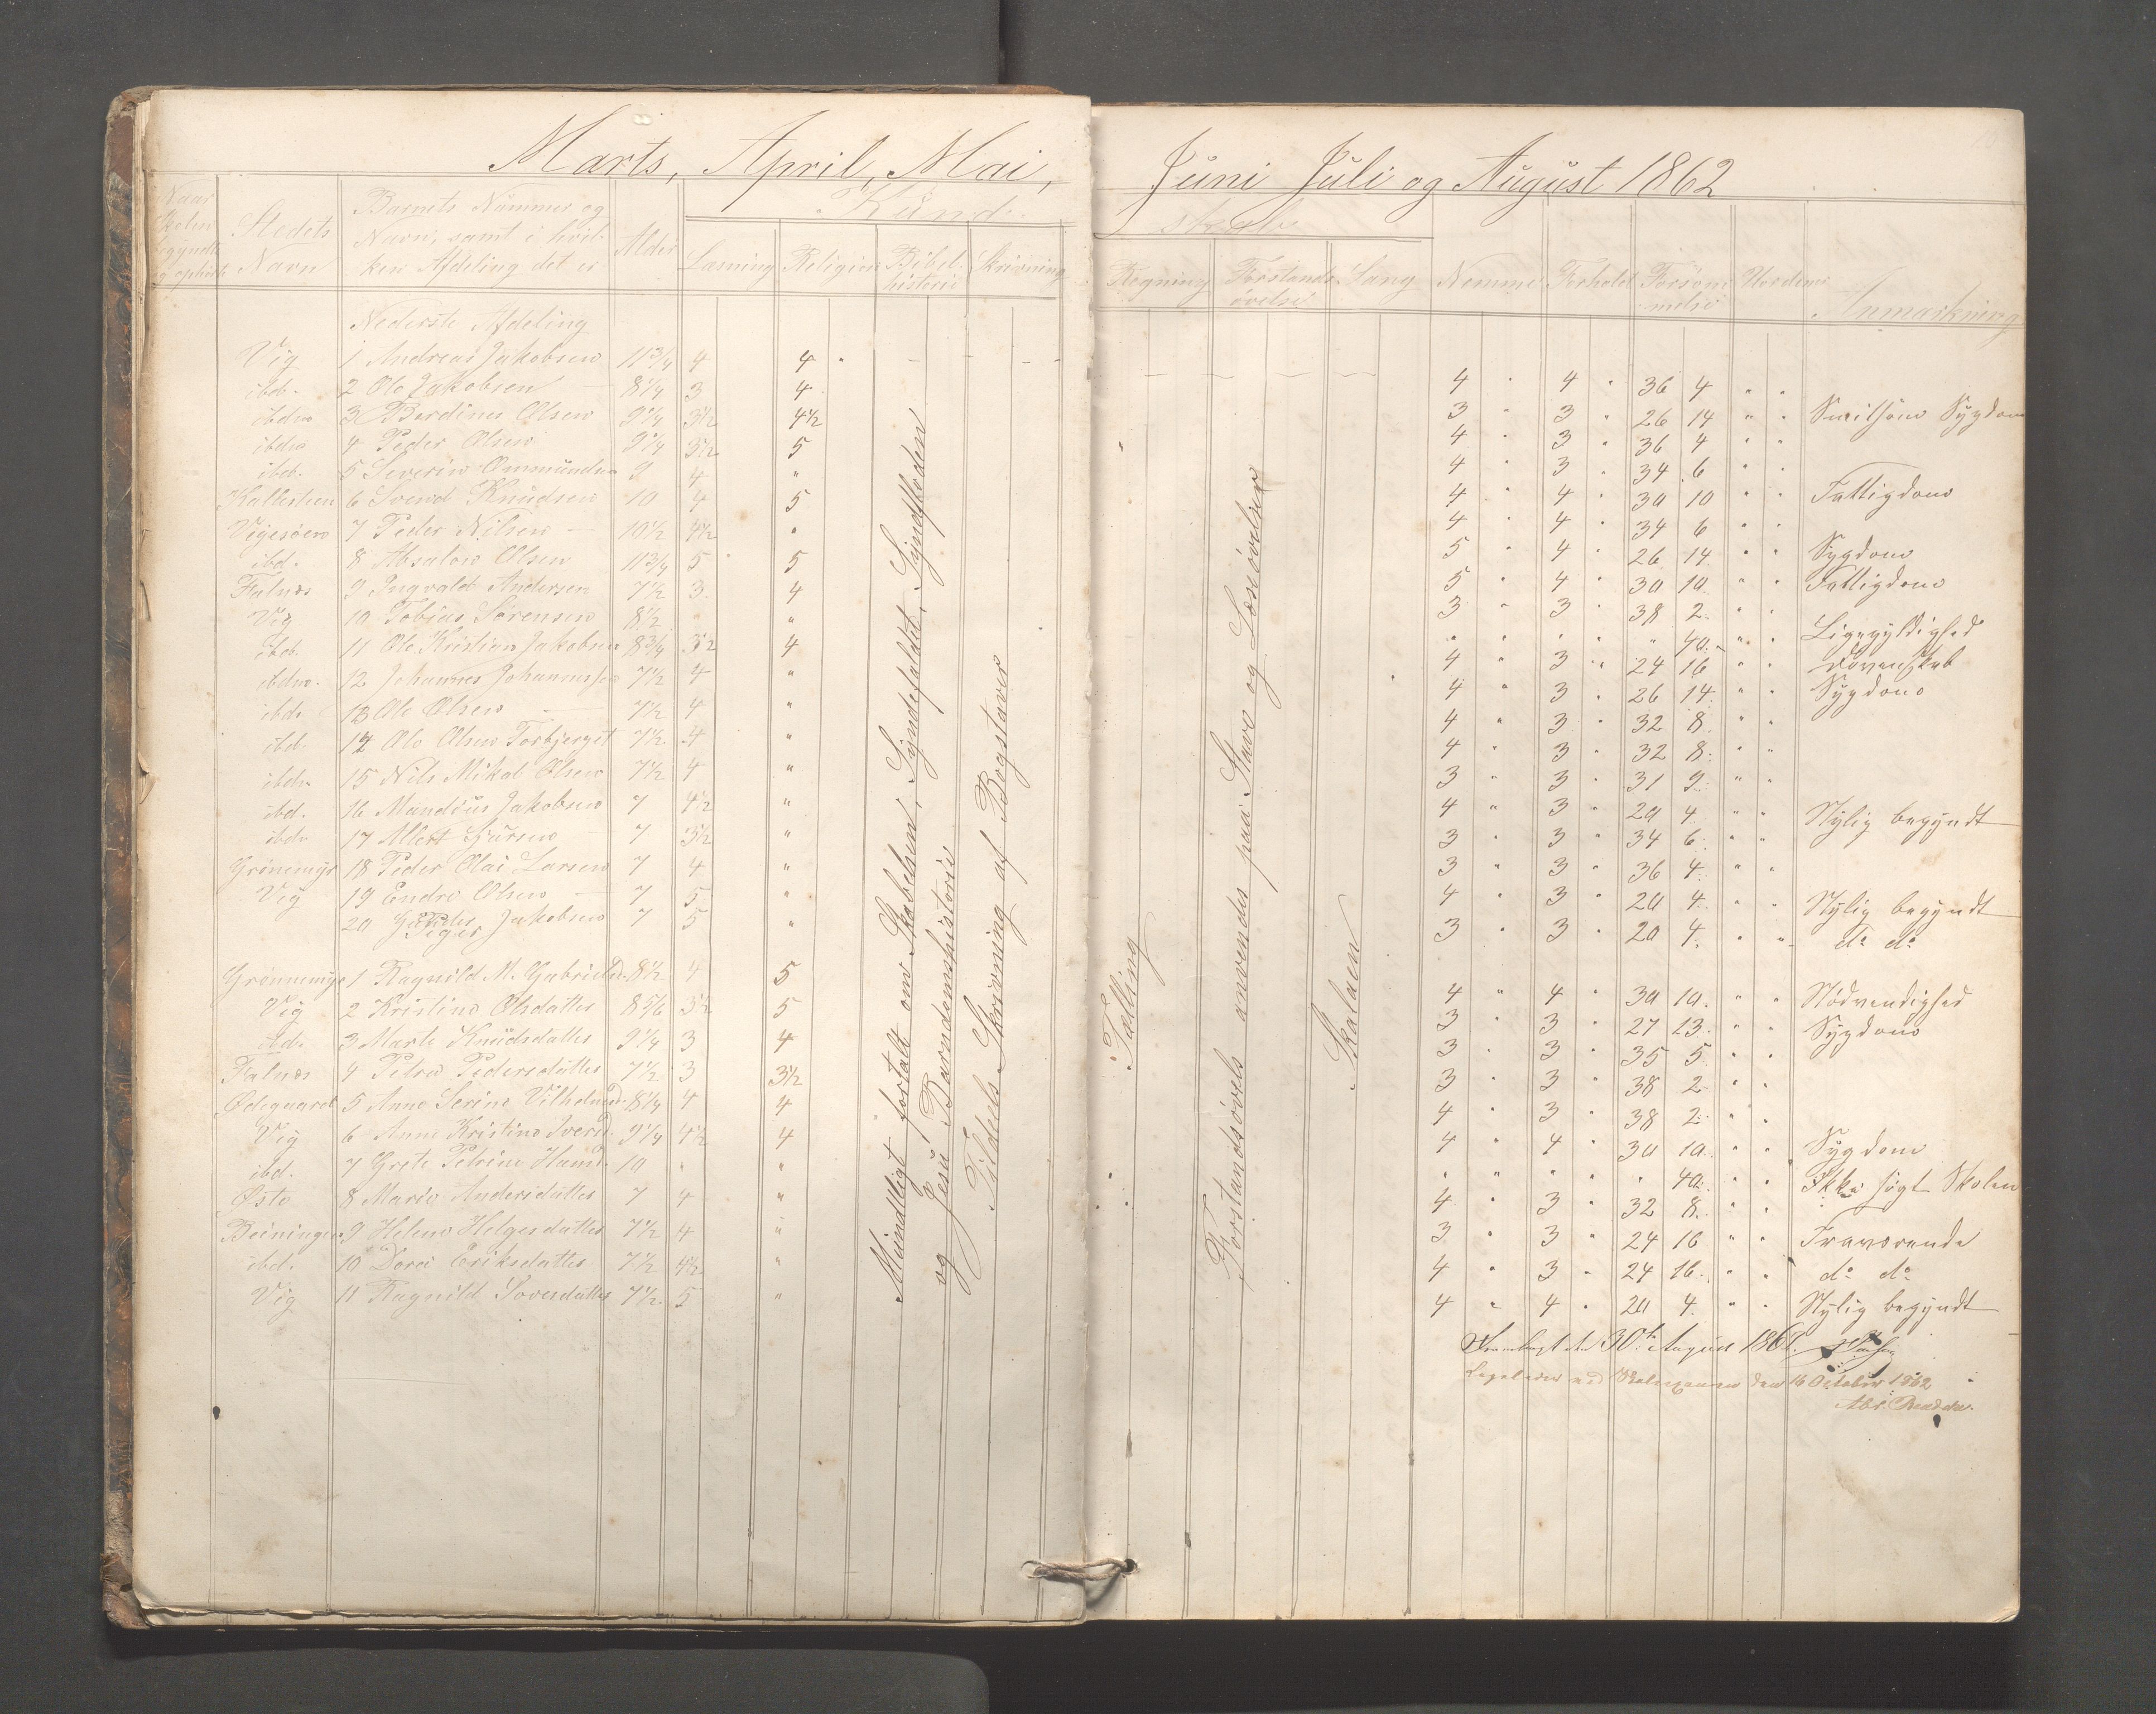 Marts, April, Mai,
Naar Skolen begyndte og ophørte
Stedets Navn
Barnets Nummer og Navn, samt i hvilken Afdeling det er
Alder
Kund-
Læsning Religion Bibelhistorie Skrivning
Nederste Afdeling
Vig 1 Andreas Jakobsen 11 3/4 4 4
ibd. 2 Ole Jakobsen 8 1/4 3 4
ibdm 3 Berdines Olsen 9 1/4 3 1/2 4 1/2
ibdm 4 Peder Olsen 9 1/4 3 1/2 5
ibd. 5 Severin Ommundsen 9 4 "
Kallesteen 6 Svend Knudsen 10 4 5
Vigesøen 7 Peder Nilsen 10 1/2 4 1/2 "
ibd. 8 Absalon Olsen 11 3/4 5 5
Falnes 9 Ingvald Andersen 7 1/2 3 4
Vig 10 Tobias Sørensen 8 1/2 "
ibd. 11 Ole Kristian Jakobsen 8 3/4 3 1/2 4
ibdm. 12 Johannes Johannessen 7 1/2 4 "
ibd. 13 Ole Olsen 7 1/2 4 "
ibd. 14 Ole Olsen Torbjerget 7 1/2 4 "
ibd. 15 Nils Mikal Olsen 7 1/2 4 "
ibd. 16 Mandius Jakobsen 7 4 1/2 "
ibd. 17 7 3 1/2 "
Grønemyr 18 Peder Olai Larsen 7 4 "
Vig 19 Endre Olsen 7 5 "
20 Jakobsen 7 5 "
Piger
Grønnemyr 1 Ragnild M. Gabrielsd. 8 1/2 4 5
Vig 2 Kristine Olsdatter 8 5/6 3 1/2 5
ibd. 3 Marte Knudsdatter 9 1/4 3 4
Falnes 4 Petra Pedersdatter 7 1/2 3 3 1/2
Ødegaard 5 Anne Serine Vilhelmsd. 8 1/4 4 4
Vig 6 Anne Kristine Iversd. 9 1/4 4 1/2 4
ibd. 7 Grete Petrine Hansd. 10 " "
Østo 8 Marie Andersdatter 7 4 "
9 Helene Helgesdatter 7 1/2 4 "
ibd. 10 Dorea Eriksdatter 7 1/2 4 1/2 "
Vig 11 Ragnild Sovesdatter 7 1/2 5 "
Mundtligt fortalt om Skabelsen, Syndefaldet, Syndfloden
og Jesu Barndomshistorie
Tildels Skrivning af Bogstaver
Juni Juli og August 1862
skab
Regning Forstandsøvelse Sang Nemme Forhold Forsømmelse Anmærkning
Tælling
Forstandsøvels anvendes paa Stave og Læseøvelser
Skalaen
4 " 4 " 36 4 " "
3 " 3 " 26 14 " " Sygdom
4 " 3 " 36 4 " "
4 " 3 " 34 6 " "
4 " 4 " 30 10 " " Fattigdom
4 " 4 " 34 6 " "
5 " 4 " 26 14 " " Sygdom
5 " 4 " 30 10 " " Fattigdom
3 " 3 " 38 2 " "
" " " " " 40 " " Ligegyldighed
4 " 3 " 24 16 " " Dovenskab
4 " 3 " 26 14 " " Sygdom
4 " 3 " 32 8 " "
4 " 3 " 32 8 " "
3 " 3 " 31 9 " "
4 " 3 " 20 4 " " Nylig begyndt
3 " 3 " 34 6 " "
3 " 3 " 36 4 " "
4 " 3 " 20 4 " " Nylig begyndt
3 " 3 " 20 4 " " do do
4 " 4 " 30 10 " " Nødvendighed
3 " 3 " 27 13 " " Sygdom
3 " 3 " 35 5 " "
3 " 3 " 38 2 " "
4 " 3 " 38 2 " "
4 " 4 " 30 10 " " Sygdom
" " " " " 40 " " Ikke søgt Skolen
4 " 3 " 32 8 " "
3 " 3 " 24 16 " " Fraværende
4 " 3 " 24 16 " " do do
4 " 4 " 20 4 " " Nylig begyndt
Fremlagt den 30te August 1862
den 16 October 1862